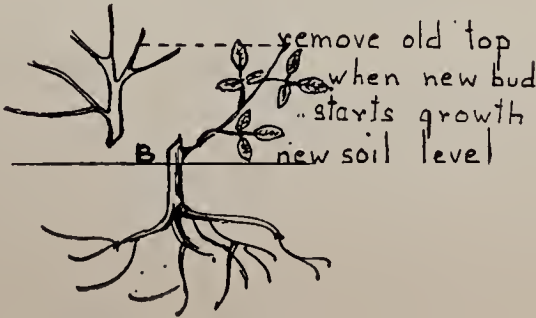 remove old top
when new bud
starts growth
B
new soil level